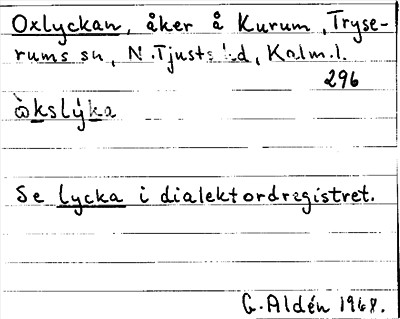 Oxlyckan, åker å Kurum, Tryse-
rums sn, N. Tjusts hd, Kalm. l.
296
ò̀kslýka
Se lycka i dialektordregistret.
G. Aldén 1968.